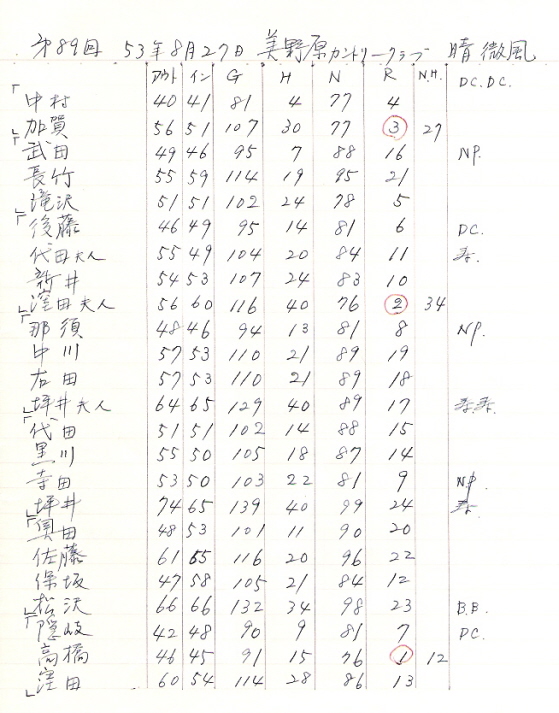 第89回 53年8月27日 美野原カントリークラブ 晴 微風
アウト イン G H N R N.H. DC.DC.
中村 40 41 81 4 77 4
加賀 56 51 107 30 77 3 27
武田 49 46 95 7 88 16 NP.
長竹 55 59 114 19 95 21
滝沢 51 51 102 24 78 5
後藤 46 49 95 14 81 6 DC.
代田夫人 55 49 104 20 84 11
新井 54 53 107 24 83 10
窪田夫人 56 60 116 40 76 2 34
那須 48 46 94 13 81 8 NP.
中川 57 53 110 21 89 19
右田 57 53 110 21 89 18
坪井夫人 64 65 129 40 89 17
代田 51 51 102 14 88 15
黒川 55 50 105 18 87 14
寺田 53 50 103 22 81 9 NP.
坪井 74 65 139 40 99 24
奥田 48 53 101 11 90 20
佐藤 61 55 116 20 96 22
保坂 47 58 105 21 84 12
松沢 66 66 132 34 98 23 B.B.
隠岐 42 48 90 9 81 7 DC.
高橋 46 45 91 15 76 1 12
窪田 60 54 114 28 86 13